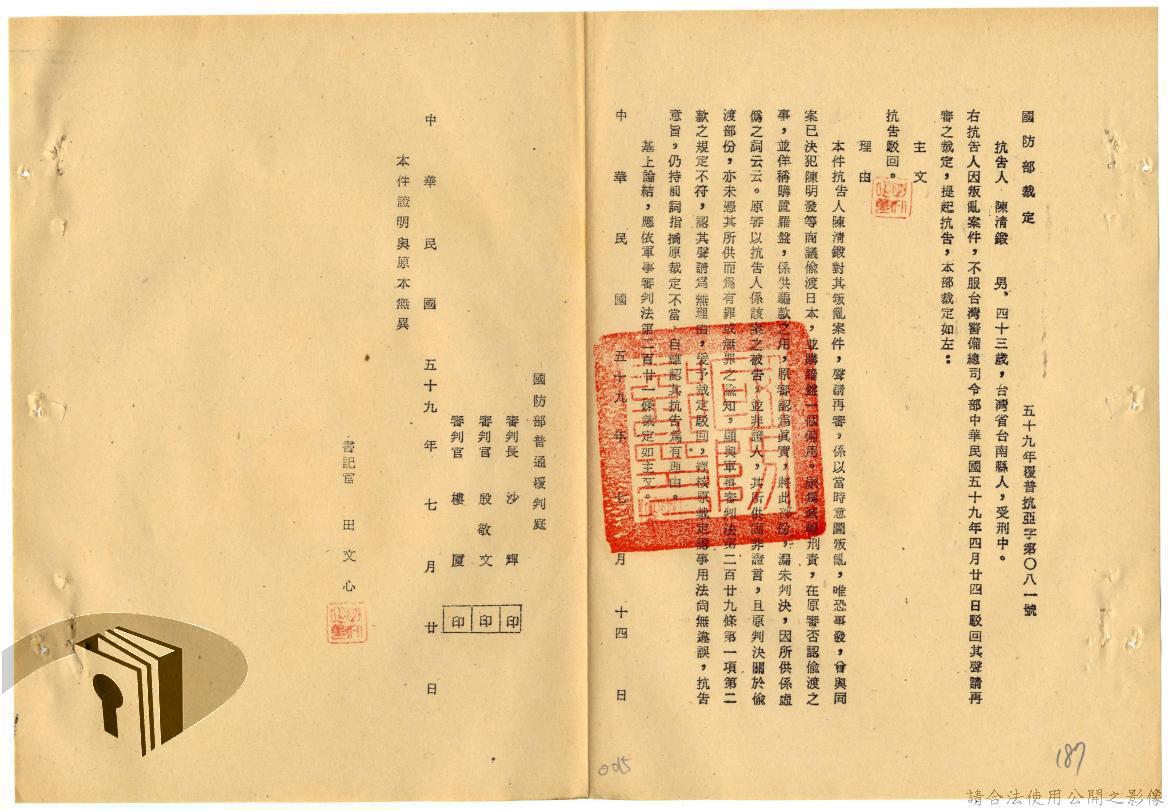 國防部裁定
五十九年覆普抗亞字第〇八一號
抗告人　陳清鍛　男，四十三歲，台灣省台南縣人，受刑中。
右抗告人因叛亂案件，不服台灣警備總司令部中華民國五十九年四月廿四日駁回其聲請再
審之裁定，提起抗告，本部裁定如左：
主文
抗告駁回。
理由
本件抗告人陳清鍛對其叛亂案件，聲請再審，係以當時意圖叛亂，唯恐事發，曾與同
案已決犯陳明發等商議偷渡日本，並購羅盤一個備用，刑責，在原審否認偷渡之
事，並佯稱購置羅盤，係供騙款之用，原審認為真實，將此部份，漏未判決，因所供係虛
偽之詞云云。原審以抗告人係該案之被告，並非證人，其所供而非證言，且原判決關於偷
渡部份，亦未憑其所供而為有罪或無罪之諭知，顯與軍事審判法第二百廿九條第一項第二
款之規定不符，認其聲請為無理由，爰予裁定駁回，經核原裁定認事用法尚無違誤，抗告
意旨，仍持前詞指摘原裁定不當，自難認其抗告為有理由。
基上論結，應依軍事審判法第二百廿一條裁定如主文。
中華民國五十九年七月十四日
國防部普通覆判庭
審判長　沙輝　印
審判官　殷敬文　印
審判官　樓厦　印
中華民國五十九年七月廿日
本件證明與原本無異
書記官　田文心
005
187
請合法使用公開之影像